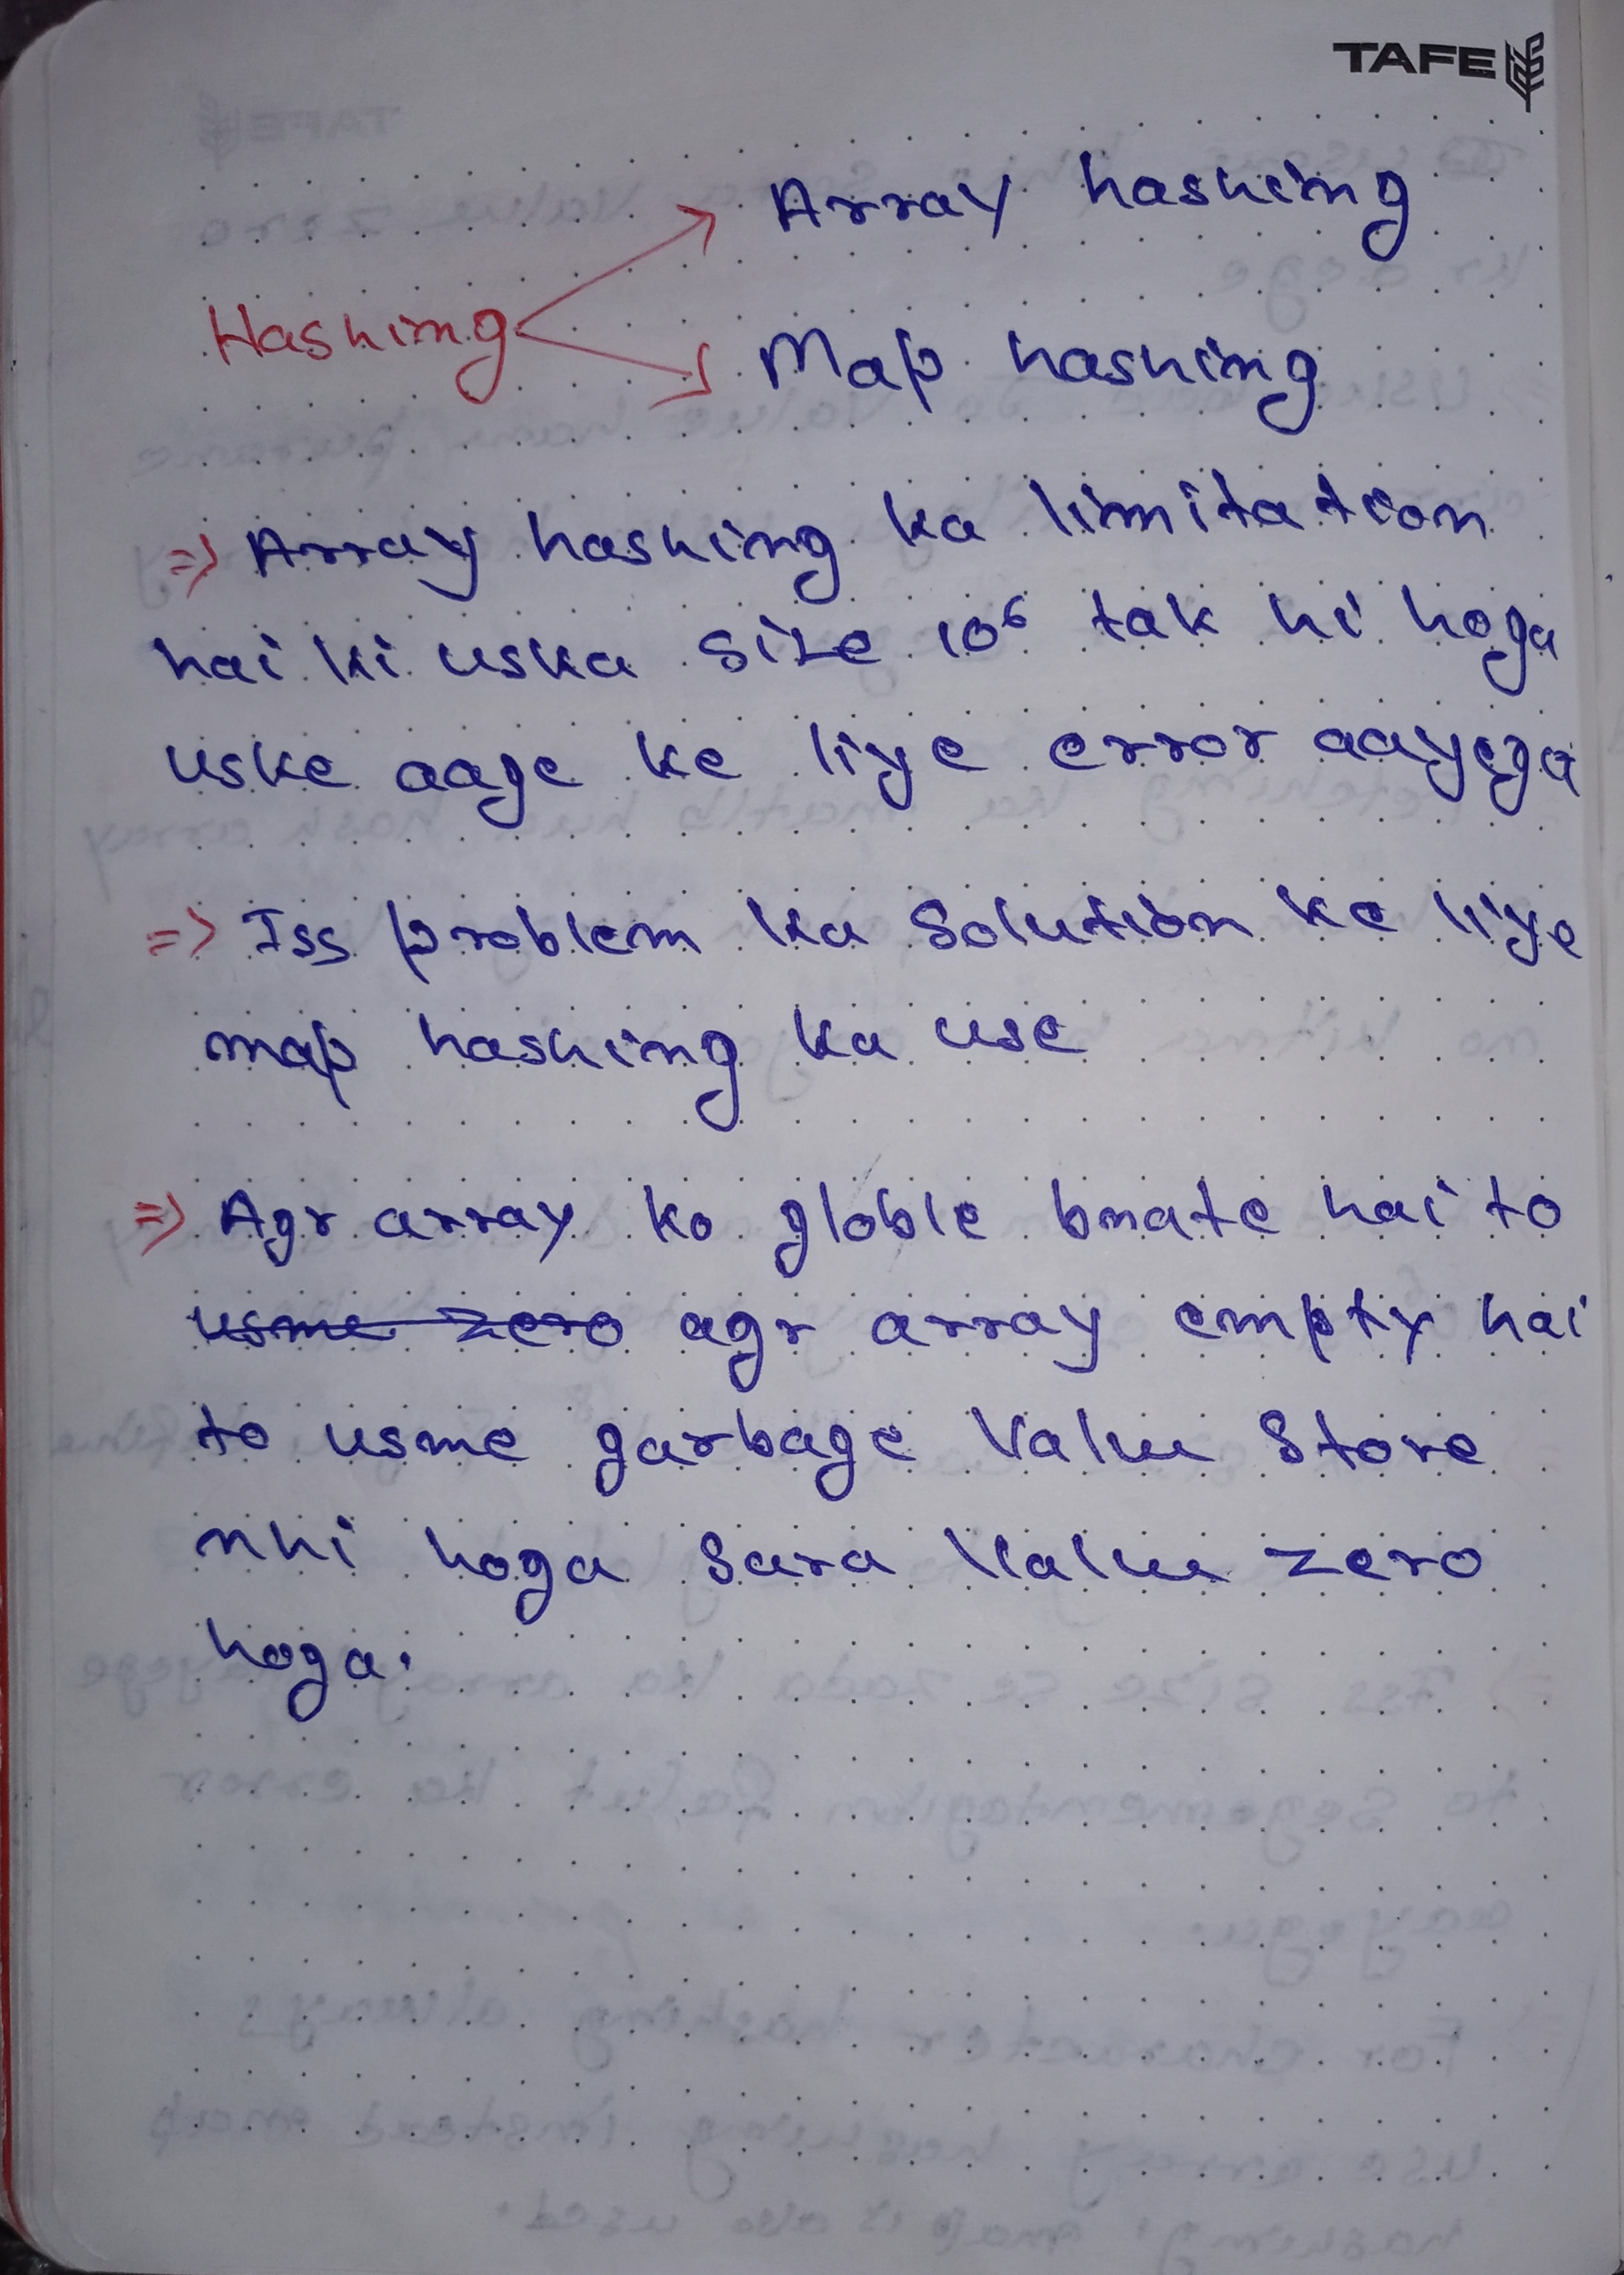 TAFE
Array hashing
Hashing
Map hashing
=> Array hashing ka limitation
hai ki uska size 10⁶ tak hi hoga
uske aage ke liye error aayega
=> Iss problem ka Solution ke liye
map hashing ka use
=> Agr array ko globle bnate hai to
usme zero agr array empty hai
to usme garbage Value Store
nhi hoga Sara Value zero
hoga.